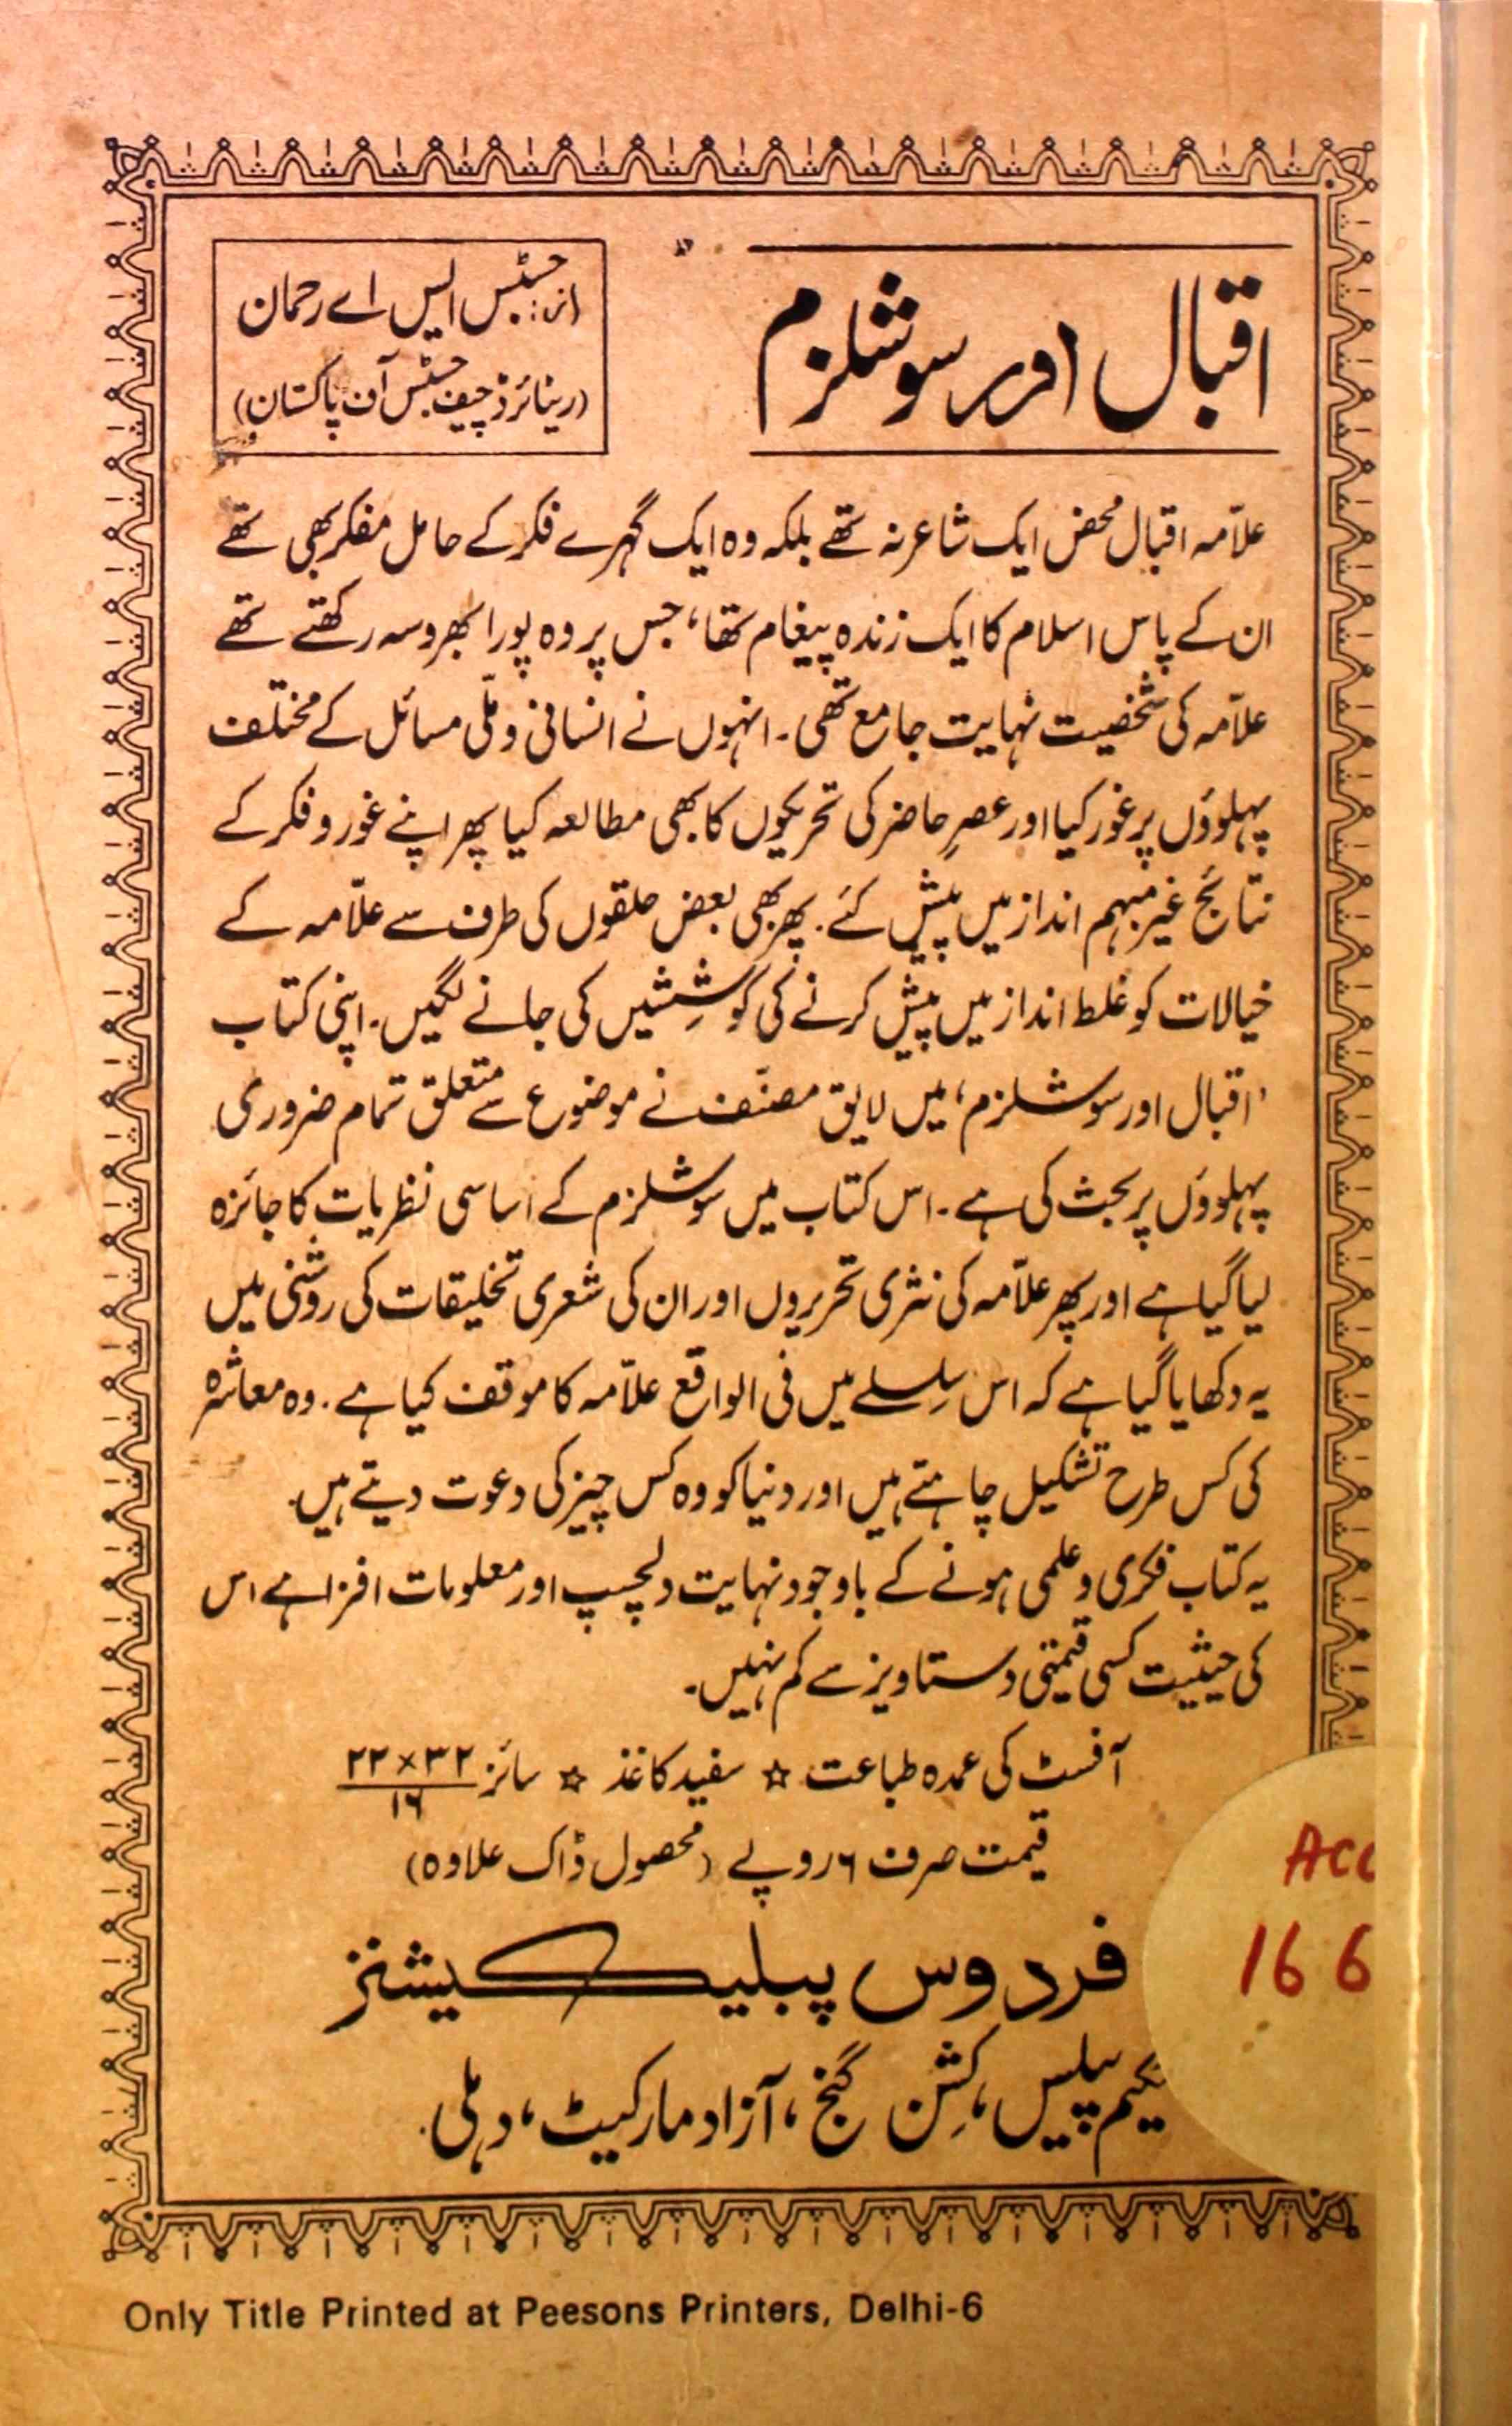 اقبال اور سوشلزم
از: جسٹس ایس اے رحمان
(ریٹائرڈ چیف جسٹس آف پاکستان)
علاّمہ اقبال محض ایک شاعر نہ تھے بلکہ وہ ایک گہرے فکر کے حامل مفکر بھی تھے
ان کے پاس اسلام کا ایک زندہ پیغام تھا، جس پر وہ پورا بھروسہ رکھتے تھے
علاّمہ کی شخصیت نہایت جامع تھی۔ انہوں نے انسانی و ملّی مسائل کے مختلف
پہلوؤں پر غور کیا اور عصرِ حاضر کی تحریکوں کا بھی مطالعہ کیا پھر اپنے غور و فکر کے
نتائج غیر مبہم انداز میں پیش کئے۔ پھر بھی بعض حلقوں کی طرف سے علاّمہ کے
خیالات کو غلط انداز میں پیش کرنے کی کوشِشیں کی جانے لگیں۔ اپنی کتاب
'اقبال اور سوشلزم' میں لایق مصنّف نے موضوع سے متعلق تمام ضروری
پہلوؤں پر بحث کی ہے۔ اس کتاب میں سوشلزم کے اساسی نظریات کا جائزہ
لیا گیا ہے اور پھر علاّمہ کی نثری تحریروں اور ان کی شعری تخلیقات کی روشنی میں
یہ دکھایا گیا ہے کہ اس سِلسلے میں فی الواقع علاّمہ کا موقف کیا ہے۔ وہ معاشرہ
کی کس طرح تشکیل چاہتے ہیں اور دنیا کو وہ کس چیز کی دعوت دیتے ہیں۔
یہ کتاب فکری و علمی ہونے کے باوجود نہایت دلچسپ اور معلومات افزا ہے اس
کی حیثیت کسی قیمتی دستاویز سے کم نہیں۔
آفسٹ کی عمدہ طباعت ☆ سفید کاغذ ☆ سائز ۲۲×۳۲
۱۶
قیمت صرف ۶ روپے (محصول ڈاک علاوہ)
فردوس پبلیکیشنز
پیلیس، کِشن گنج، آزاد مارکیٹ، دہلی۔
Acc
166
Only Title Printed at Peesons Printers, Delhi-6